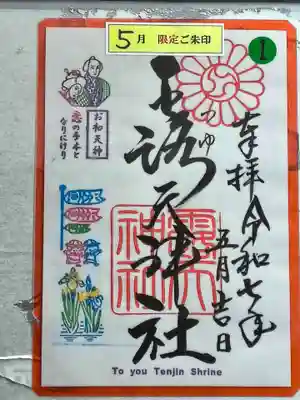 5月 限定ご朱印
1
奉拝 令和七年
五月吉日
つゆ
露天神社
お初天神
恋の手本と
なりにけり
露天神社
To you Tenjin Shrine